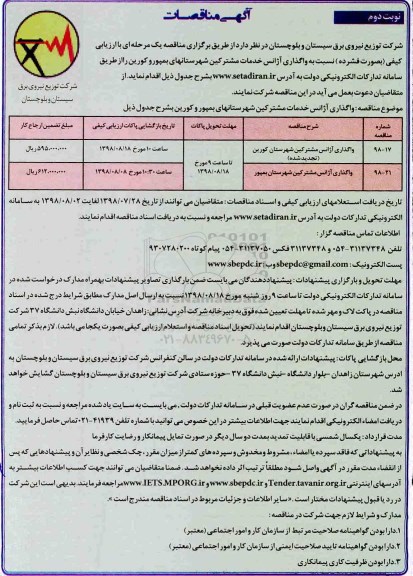 آگهی مناقصات
نوبت دوم
شرکت توزیع نیروی برق سیستان و بلوچستان در نظر دارد از طریق برگزاری مناقصه یک مرحله ای با ارزیابی
کیفی (بصورت فشرده) نسبت به واگذاری آژانس خدمات مشترکین شهرستانهای بمپور و کورین را از طریق
سامانه تدارکات الکترونیکی دولت به آدرس www.setadiran.ir بشرح جدول ذیل اقدام نماید. از
متقاضیان دعوت بعمل می آید در این مناقصه شرکت نمایند.
موضوع مناقصه: واگذاری آژانس خدمات مشترکین شهرستانهای بمپور و کورین بشرح جدول ذیل
شرکت توزیع نیروی برق
سیستان و بلوچستان
شماره مناقصه شرح مناقصه مهلت تحویل پاکات تاریخ بازگشایی پاکات ارزیابی کیفی مبلغ تضمین ارجاع کار
۹۸-۱۷ واگذاری آژانس مشترکین شهرستان کورین (تجدید شده) تا ساعت ۹ مورخ ۱۳۹۸/۰۸/۱۸ ساعت ۱۰ مورخ ۱۳۹۸/۰۸/۱۸ ۵۹۵.۰۰۰.۰۰۰ ریال
۹۸-۲۱ واگذاری آژانس مشترکین شهرستان بمپور ساعت ۱۰:۳۰ مورخ ۱۳۹۸/۰۸/۱۸ ۶۱۲.۰۰۰.۰۰۰ ریال
تاریخ دریافت استعلامهای ارزیابی کیفی و اسناد مناقصات: متقاضیان می توانند از تاریخ ۱۳۹۸/۰۷/۲۸ لغایت ۱۳۹۸/۰۸/۰۲ به سامانه
الکترونیکی تدارکات دولت به آدرس www.setadiran.ir مراجعه و نسبت به دریافت اسناد مناقصه اقدام نمایند.
اطلاعات تماس مناقصه گزار:
تلفن ۳۱۱۳۷۳۴۸-۰۵۴ و ۳۱۱۳۷۳۴۸ فکس ۳۱۱۳۷۰۵۰-۰۵۴ پیام کوتاه ۹۳۰۷۲۸۰۲۰۰
پست الکترونیک: sbepdc@gmail.com وب: www.sbepdc.ir
مهلت تحویل و بارگزاری پیشنهادات: پیشنهاد دهندگان می بایست ضمن بارگذاری تصاویر پیشنهادات بهمراه مدارک درخواست شده در
سامانه تدارکات الکترونیکی دولت تا ساعت ۹ روز شنبه مورخ ۱۳۹۸/۰۸/۱۸ نسبت به ارسال اصل مدارک مطابق شرایط درج شده در اسناد
مناقصه در پاکت لاک و مهر شده تا مهلت تعیین شده فوق به دبیرخانه شرکت آدرس نشانی: زاهدان خیابان دانشگاه نبش دانشگاه ۳۷ شرکت
توزیع نیروی برق سیستان و بلوچستان اقدام نمایند (تحویل اسناد مناقصه و استعلام ارزیابی کیفی بصورت یکجا می باشد). لازم بذکر تمامی
مناقصه از طریق سامانه تدارکات دولت صورت می پذیرد.
محل بازگشایی پاکات: پیشنهادات ارائه شده در سامانه تدارکات دولت در سالن کنفرانس شرکت توزیع نیروی برق سیستان و بلوچستان به
آدرس شهرستان زاهدان -بلوار دانشگاه -نبش دانشگاه ۳۷ -حوزه ستادی شرکت توزیع نیروی برق سیستان و بلوچستان گشایش خواهد
شد.
در ضمن مناقصه گران در صورت عدم عضویت قبلی در سامانه تدارکات دولت، می بایست به سایت یاد شده مراجعه و نسبت به ثبت نام و
دریافت امضاء الکترونیکی اقدام نمایند جهت اطلاعات بیشتر در این خصوص می توانید با شماره تلفن ۴۱۹۳۴-۰۲۱ تماس حاصل فرمایید.
مدت قرارداد: یکسال شمسی با قابلیت تمدید بمدت دو سال دیگر در صورت تمایل پیمانکار و رضایت کارفرما
به پیشنهاداتی که فاقد سپرده یا امضاء، مشروط و مخدوش و سپرده های کمتر از میزان مقرر، چک شخصی و نظایر آن و پیشنهادهایی که پس
از انقضاء مدت مقرر در آگهی واصل شود مطلقا ترتیب اثر داده نخواهد شد. ضمنا متقاضیان می توانند جهت کسب اطلاعات بیشتر به
آدرسهای اینترنتی Tender.tavanir.org.ir و www.sbepdc.ir و www.IETS.MPORG.ir مراجعه فرمایند. بدیهی است این شرکت
در رد یا قبول پیشنهادات مختار است. "سایر اطلاعات و جزئیات مربوط در اسناد مناقصه مندرج است."
مدارک و شرایط لازم جهت شرکت در مناقصه:
۱.دارا بودن گواهینامه صلاحیت مرتبط از سازمان کار و امور اجتماعی (معتبر)
۲.دارا بودن گواهینامه تایید صلاحیت ایمنی از سازمان کار و امور اجتماعی (معتبر)
۳.دارا بودن ظرفیت کاری پیمانکاری